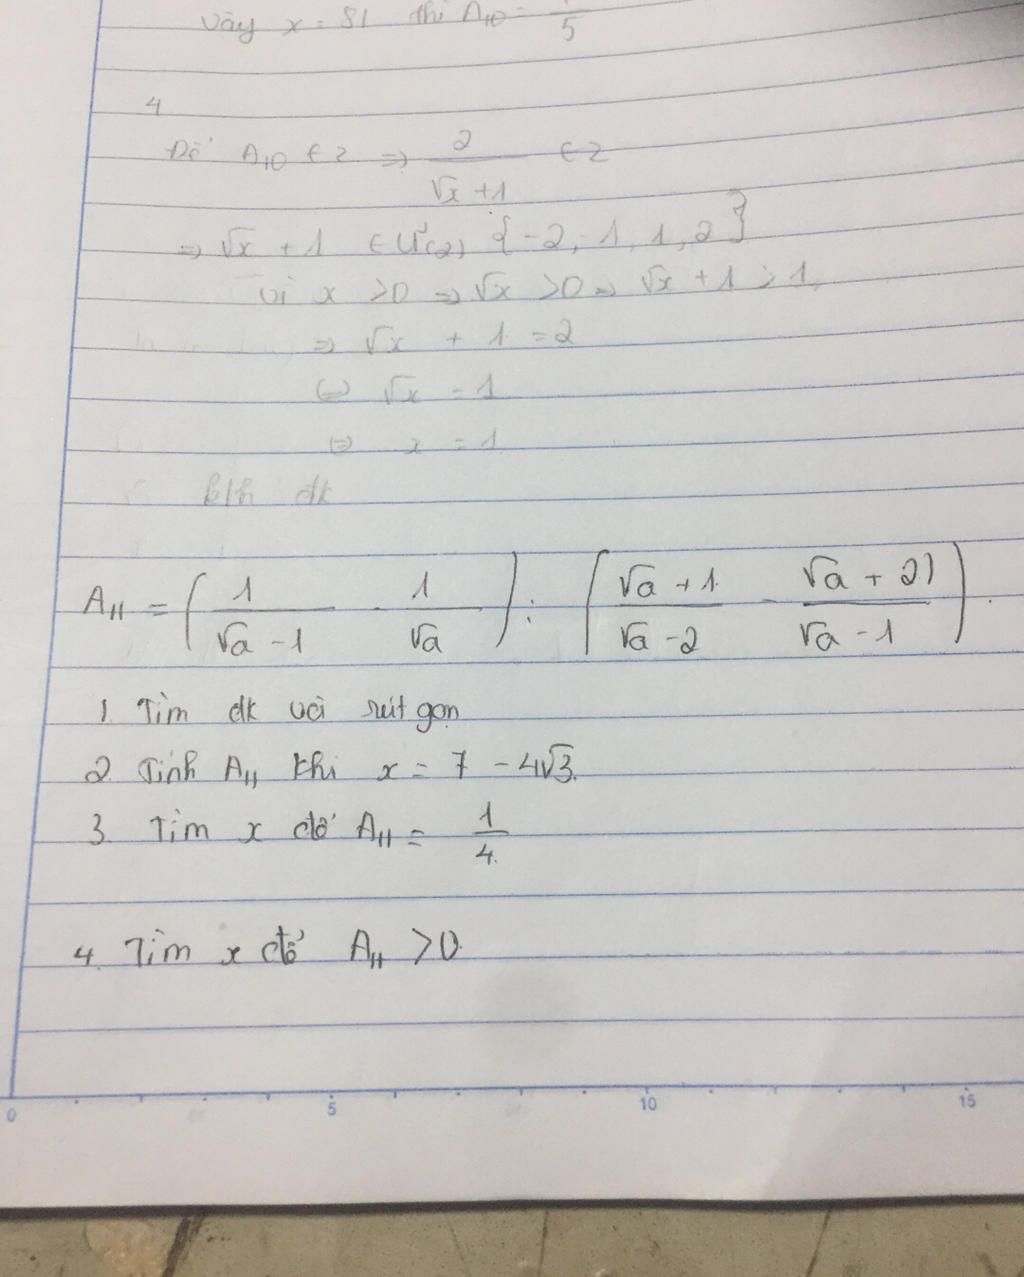 Vậy x = 81 thì A₁₀ = 1/5
4
Để A₁₀ ∈ Z ⇒ 2/(√x + 1) ∈ Z
⇒ √x + 1 ∈ Ư(2) {-2, -1, 1, 2}
Vì x > 0 ⇒ √x > 0 ⇒ √x + 1 > 1
⇒ √x + 1 = 2
⇔ √x = 1
⇔ x = 1
đk
A₁₁ = (1/(√a - 1) - 1/√a) : ((√a + 1)/(√a - 2) - (√a + 2)/(√a - 1)).
1. Tìm đk và rút gọn
2. Tính A₁₁ khi x = 7 - 4√3.
3. Tìm x để A₁₁ = 1/4.
4. Tìm x để A₁₁ > 0.
0 5 10 15